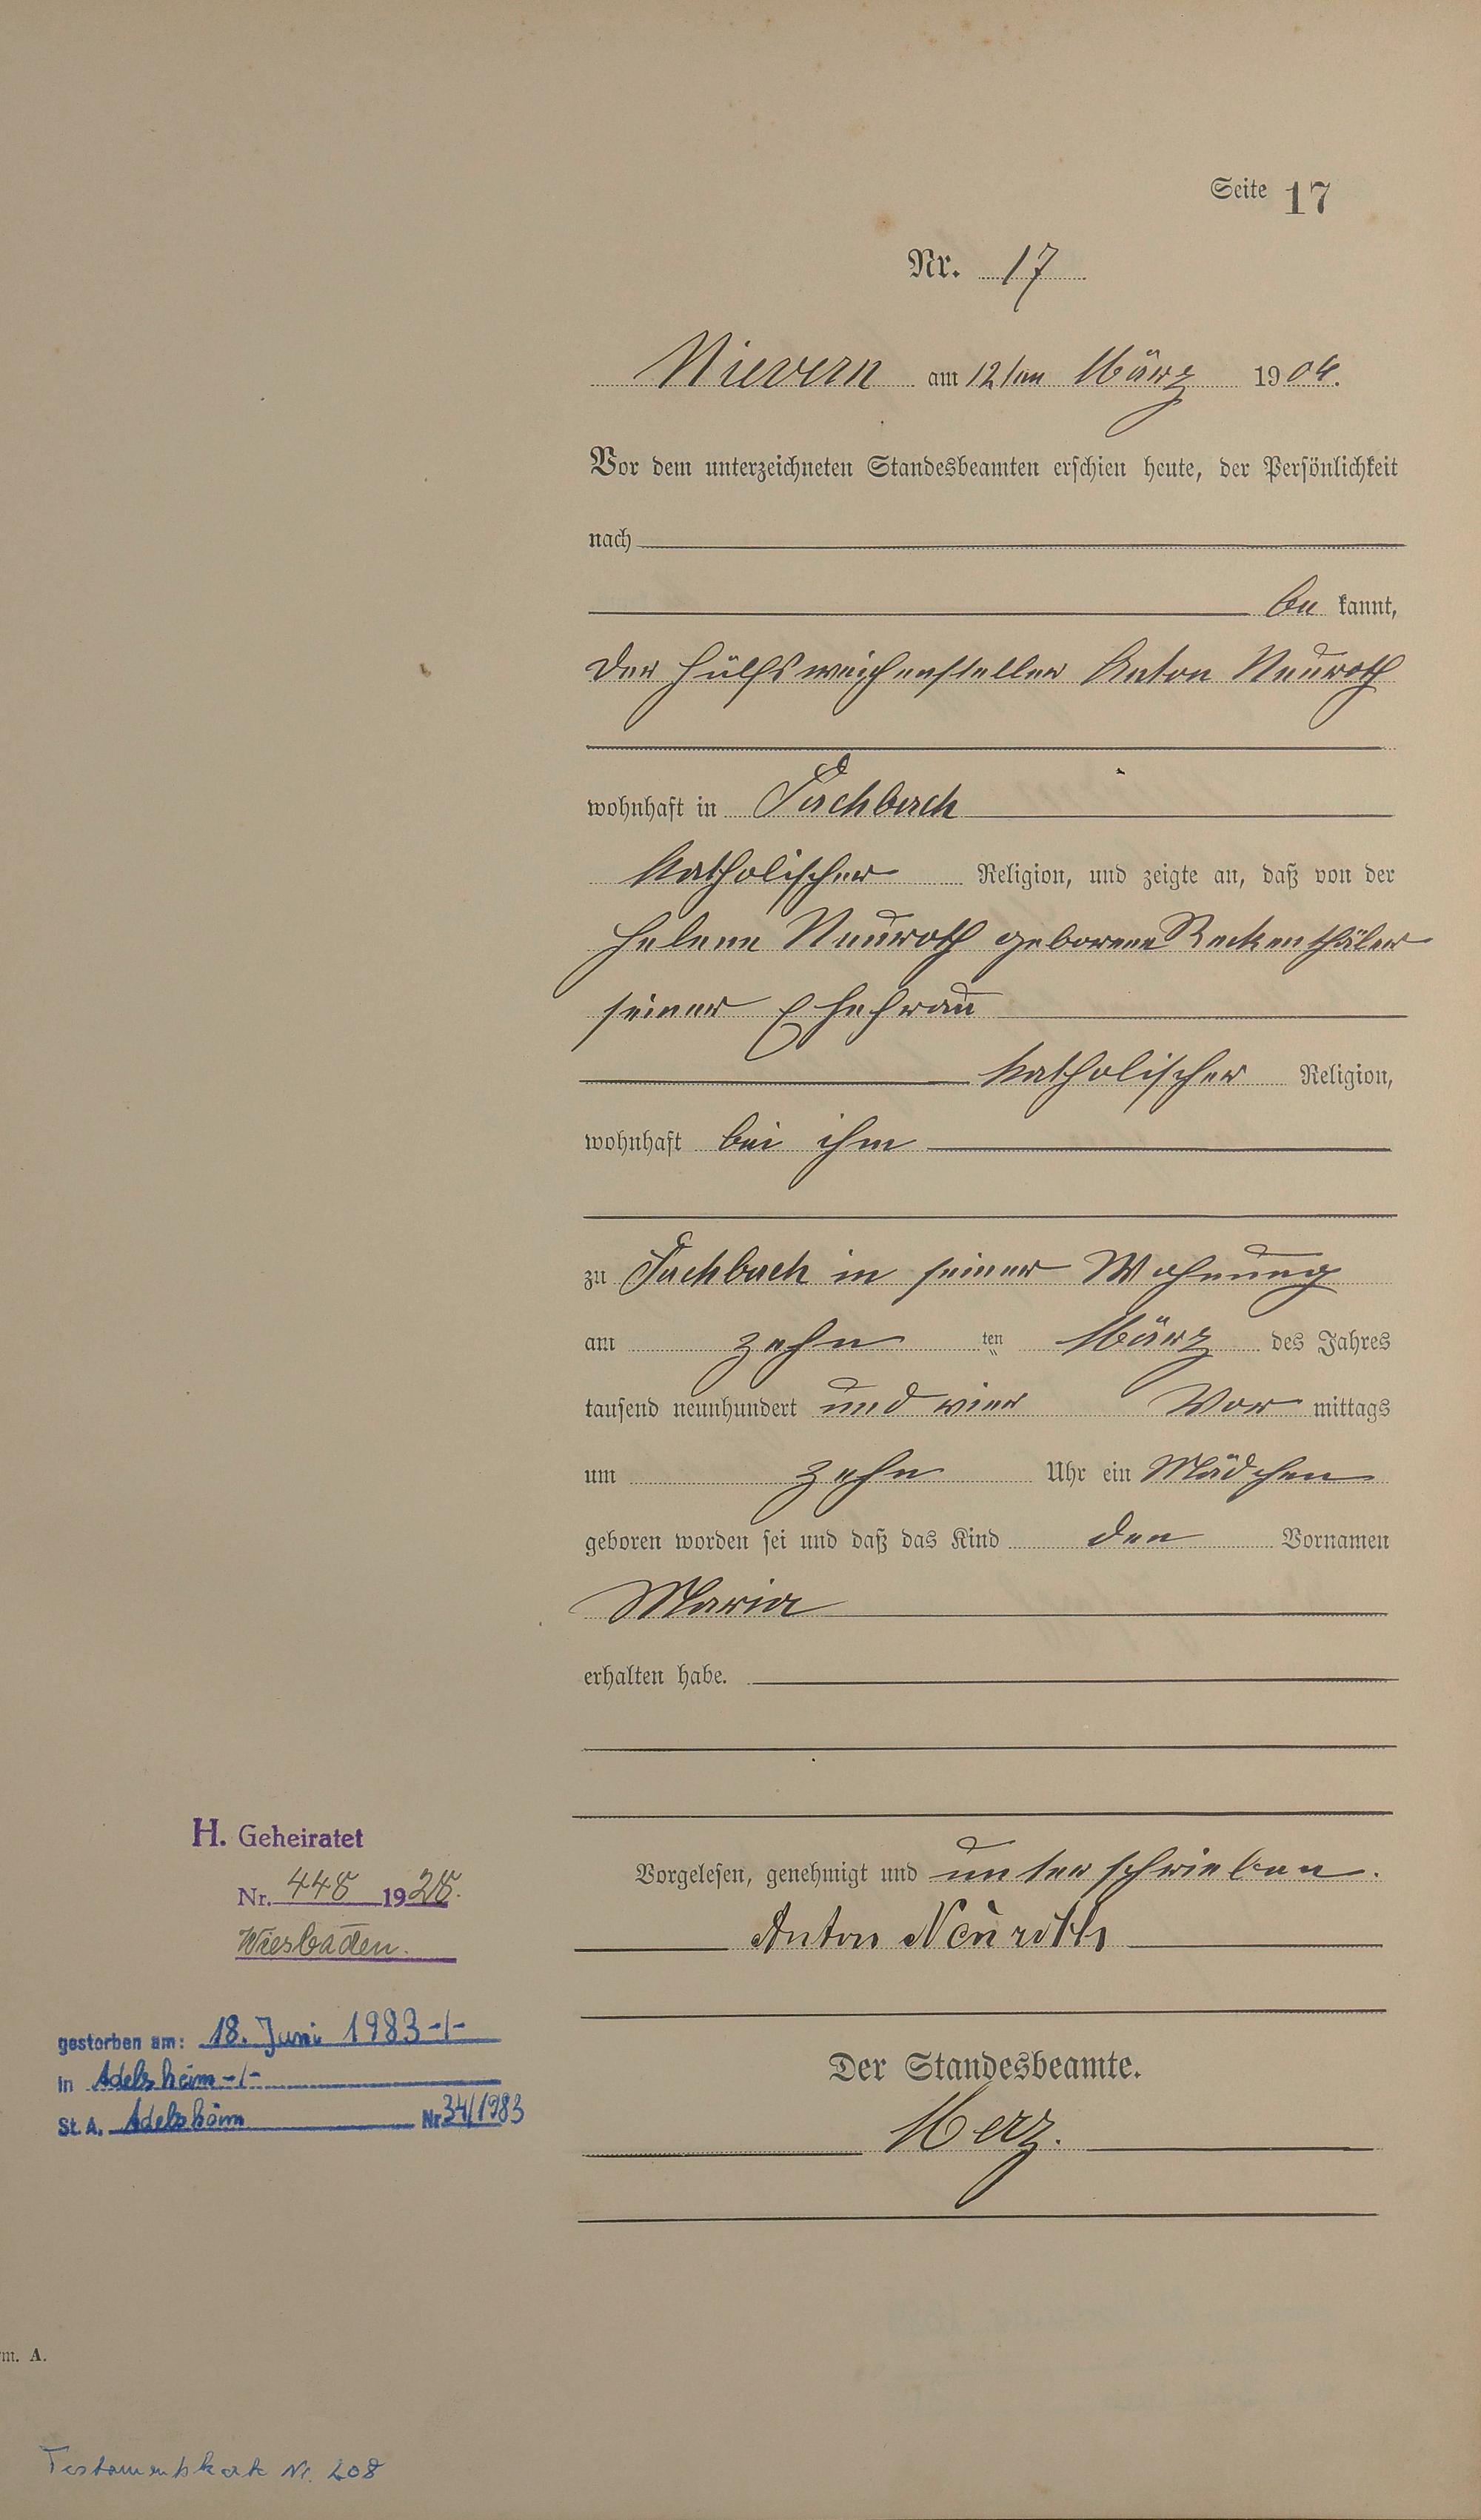 Seite 17
Nr. 17
Nievern am 12ten März 1904.
Vor dem unterzeichneten Standesbeamten erschien heute, der Persönlichkeit
nach
be kannt,
der Hülfsweichensteller Anton Neuroth
wohnhaft in Fachbach
katholischer Religion, und zeigte an, daß von der
Helene Neuroth geborene Reckenthäler
seiner Ehefrau
katholischer Religion,
wohnhaft bei ihm
zu Fachbach in seiner Wohnung
am zehn ten März des Jahres
tausend neunhundert und vier Vor mittags
um zehn Uhr ein Mädchen
geboren worden sei und daß das Kind den Vornamen
Maria
erhalten habe.
Vorgelesen, genehmigt und unterschrieben.
Anton Neuroth
Der Standesbeamte.
Merz.
H. Geheiratet
Nr. 448 1928.
Wiesbaden.
gestorben am: 18. Juni 1983-/-
in Adelsheim-/-
St. A. Adelsheim Nr 34/1983
m. A.
Testamentskarte Nr. 208